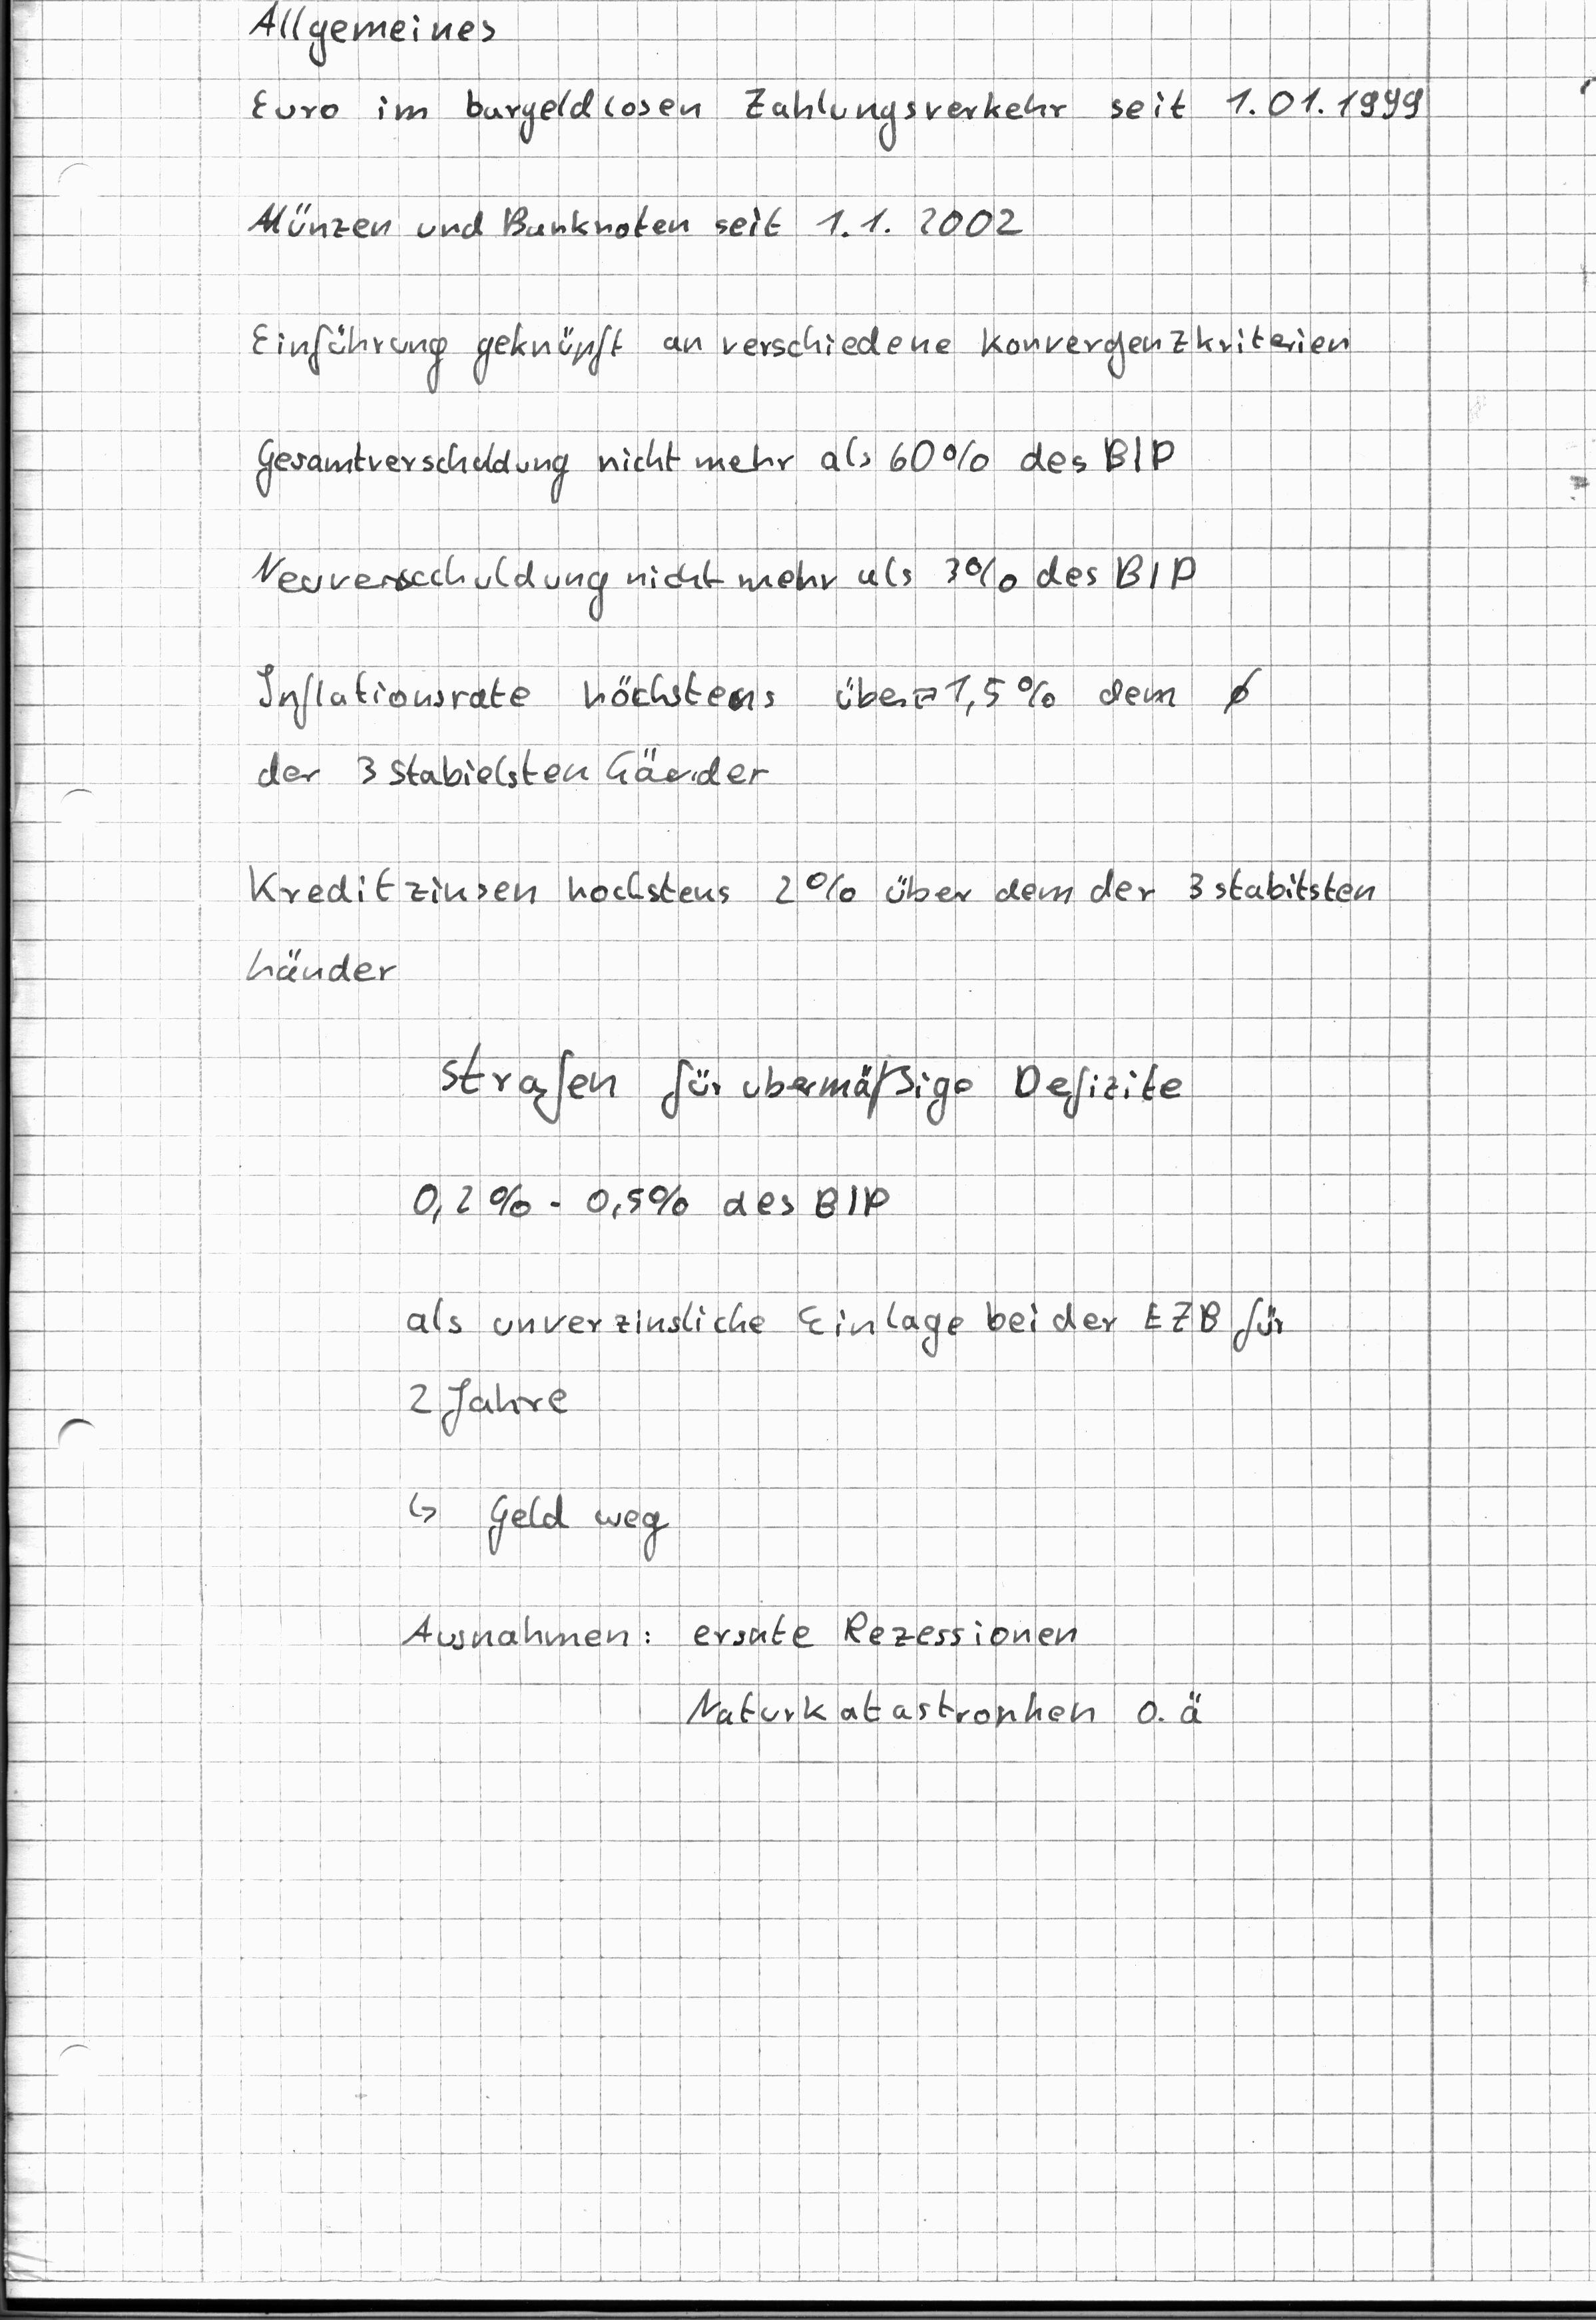 Allgemeines
Euro im bargeldlosen Zahlungsverkehr seit 1.01.1999
Münzen und Banknoten seit 1.1. 2002
Einführung geknüpft an verschiedene Konvergenzkriterien
Gesamtverschuldung nicht mehr als 60% des BIP
Neuverscchuldung nicht mehr als 3% des BIP
Inflationsrate höchstens über 1,5% dem ø
der 3 stabielsten Länder
Kreditzinsen hochstens 2% über dem der 3 stabilsten
Länder
Strafen für übermäßige Defizite
0,2% - 0,5% des BIP
als unverzinsliche Einlage bei der EZB für
2 Jahre
↳ Geld weg
Ausnahmen: ersnte Rezessionen
Naturkatastrophen o. ä